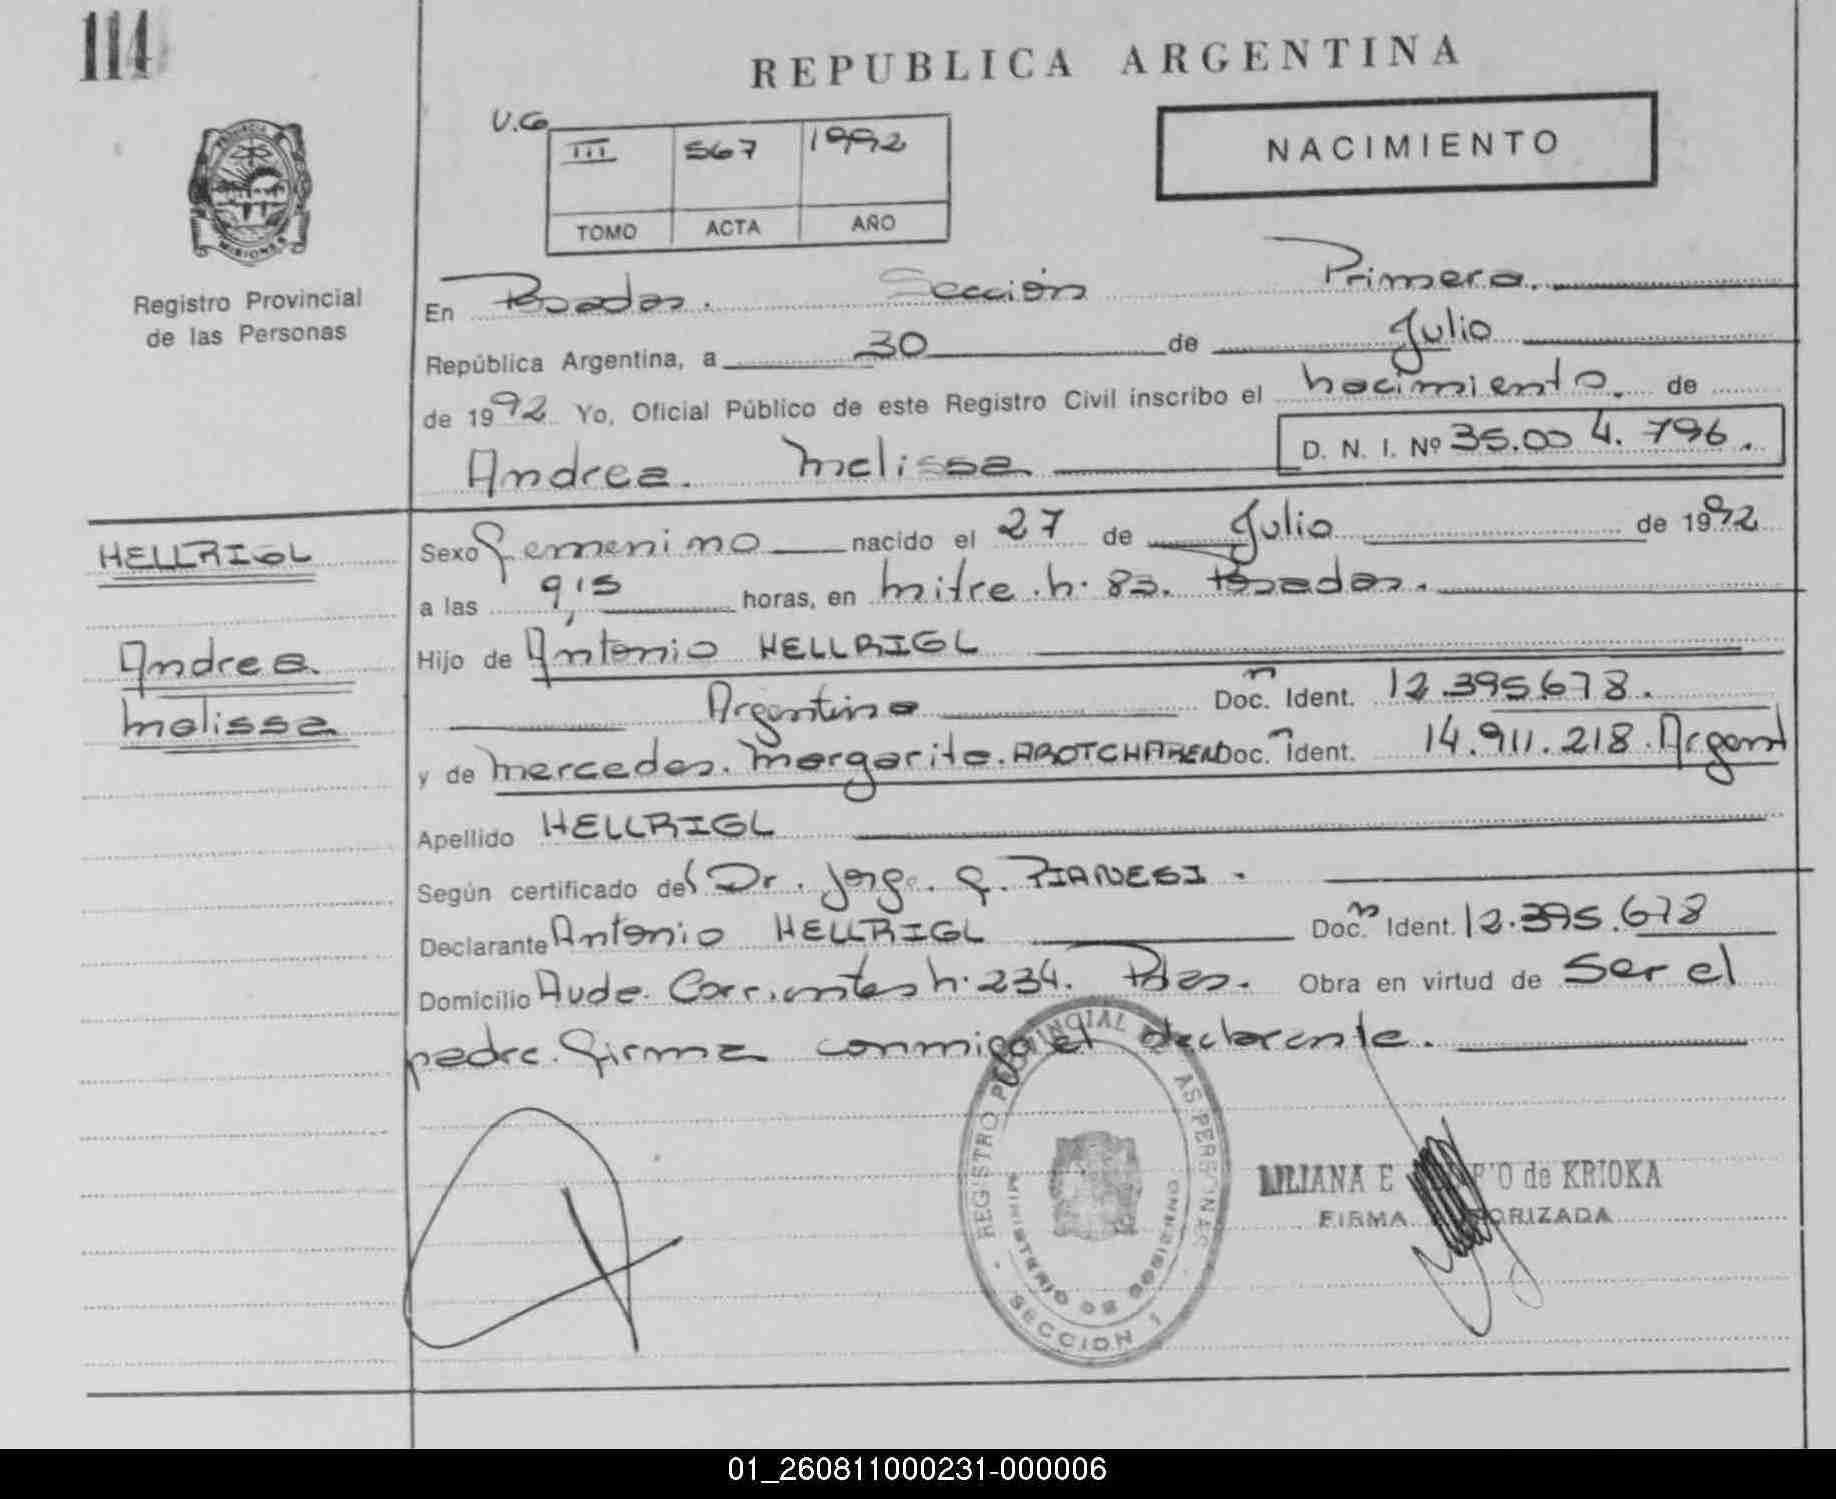 114
REPUBLICA ARGENTINA
NACIMIENTO
V.G.
III 567 1992
TOMO ACTA AÑO
PROVINCIA DE MISIONES
Registro Provincial
de las Personas
En Posadas. Sección Primera.
República Argentina, a 30 de Julio
de 1992 Yo, Oficial Público de este Registro Civil inscribo el nacimiento. de
D. N. I. Nº 35.004.796.
Andrea. Melissa
HELLRIGL
Andrea
Melissa
Sexo Femenino nacido el 27 de Julio de 1992
a las 9,15 horas, en Mitre. n. 83. Posadas.
Hijo de Antonio HELLRIGL
Argentino Doc. n Ident. 12.395.678.
y de Mercedes. Margarita. AROTCHAREN Doc. n Ident. 14.911.218. Argent
Apellido HELLRIGL
Según certificado del Dr. Jorge. F. PIANESI.
Declarante Antonio HELLRIGL Doc. n Ident. 12.395.678
Domicilio Avde. Corrientes n. 234. Pdas. Obra en virtud de ser el
padre. Firma conmigo el declarante.
REGISTRO PROVINCIAL DE LAS PERSONAS
MINISTERIO DE GOBIERNO
SECCION 1
LILIANA E de KRIOKA
FIRMA AUTORIZADA
01_260811000231-000006